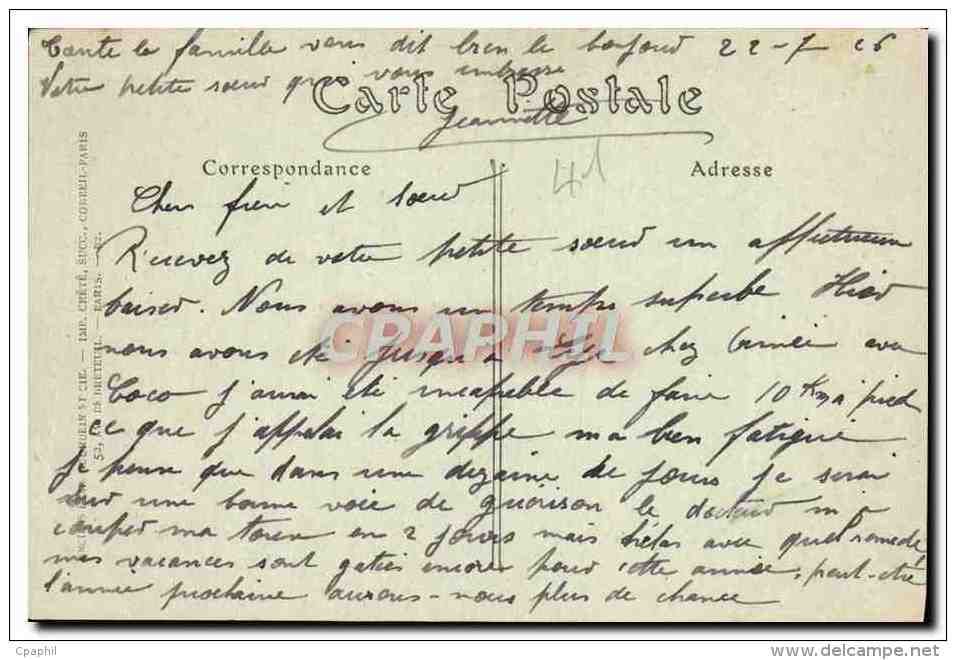 Toute la famille vous dit bien le bonjour 22-7 26
Votre petite sœur qui vous embrasse
Carte Postale
Jeannette
Correspondance
Adresse
41
Cher frère et sœur
Recevez de votre petite sœur un affectueux
baiser. Nous avons un temps superbe Hier
CPAPHIL
nous avons été jusqu'à chez Aimée avec
Coco j'aurai été incapable de faire 10 Km à pied
ce que j'appelai la grippe ma bien fatigué
je pense que dans une dizaine de jours je serai
sur une bonne voie de guérison le docteur m'a
coupé ma toux en 2 jours mais hélas avec quel remède,
mes vacances sont gatées encore pour cette année, peut-être
l'année prochaine aurons-nous plus de chance
IMP. CRÉTÉ, SUCC., CORBEIL-PARIS
52, AV. DE BRETEUIL. — PARIS.
Cpaphil
http://www.delcampe.net